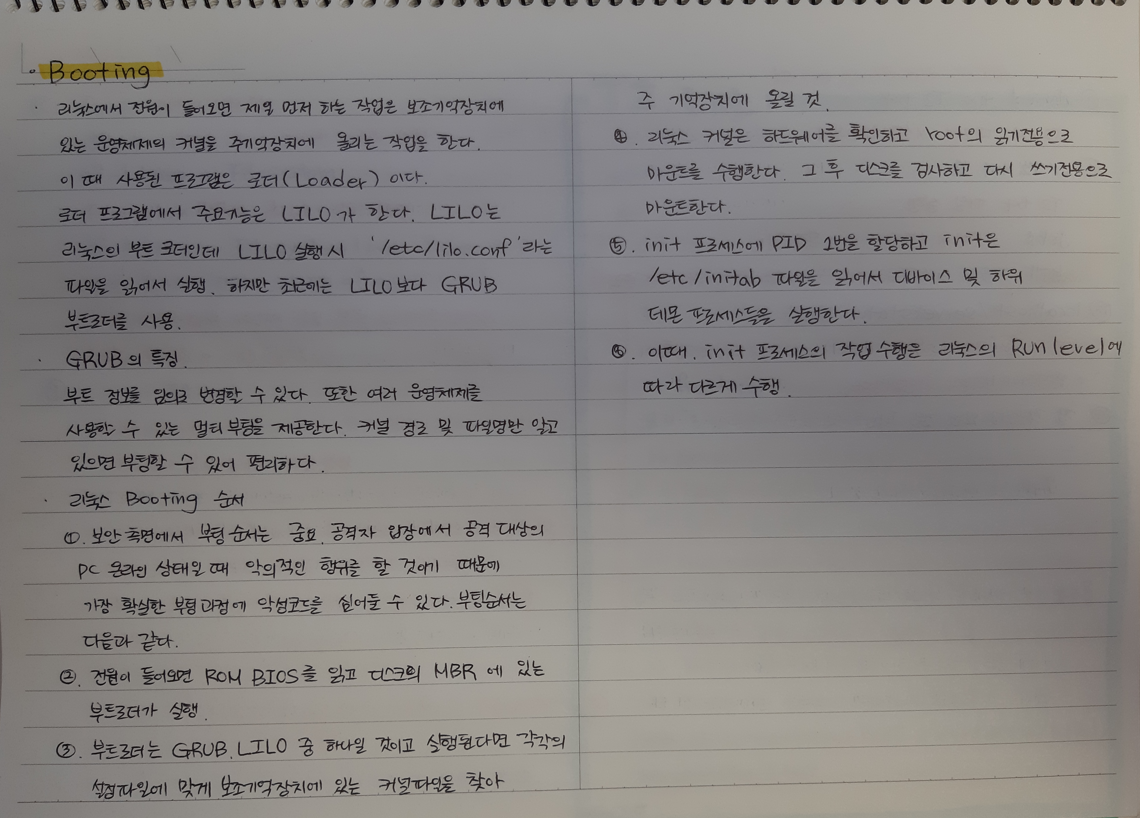 · Booting
· 리눅스에서 전원이 들어오면 제일 먼저 하는 작업은 보조기억장치에
있는 운영체제의 커널을 주기억장치에 올리는 작업을 한다.
이 때 사용된 프로그램은 로더(Loader) 이다.
로더 프로그램에서 주요기능은 LILO가 한다. LILO는
리눅스의 부트 로더인데 LILO 실행 시 '/etc/lilo.conf' 라는
파일을 읽어서 실행. 하지만 최근에는 LILO보다 GRUB
부트로더를 사용.
· GRUB의 특징.
부트 정보를 임의로 변경할 수 있다. 또한 여러 운영체제를
사용할 수 있는 멀티부팅을 제공한다. 커널 경로 및 파일명만 알고
있으면 부팅할 수 있어 편리하다.
· 리눅스 Booting 순서
①. 보안 측면에서 부팅 순서는 중요. 공격자 입장에서 공격 대상의
PC 온라인 상태일 때 악의적인 행위를 할 것이기 때문에
가장 확실한 부팅과정에 악성코드를 심어둘 수 있다. 부팅순서는
다음과 같다.
②. 전원이 들어오면 ROM BIOS를 읽고 디스크의 MBR에 있는
부트로더가 실행.
③. 부트로더는 GRUB, LILO 중 하나일 것이고 실행된다면 각각의
설정파일에 맞게 보조기억장치에 있는 커널파일을 찾아
주 기억장치에 올릴 것.
④. 리눅스 커널은 하드웨어를 확인하고 root의 읽기전용으로
마운트를 수행한다. 그 후 디스크를 검사하고 다시 쓰기전용으로
마운트한다.
⑤. init 프로세스에 PID 1번을 할당하고 init은
/etc/initab 파일을 읽어서 디바이스 및 하위
데몬 프로세스들을 실행한다.
⑥. 이때, init 프로세스의 작업 수행은 리눅스의 Run level에
따라 다르게 수행.